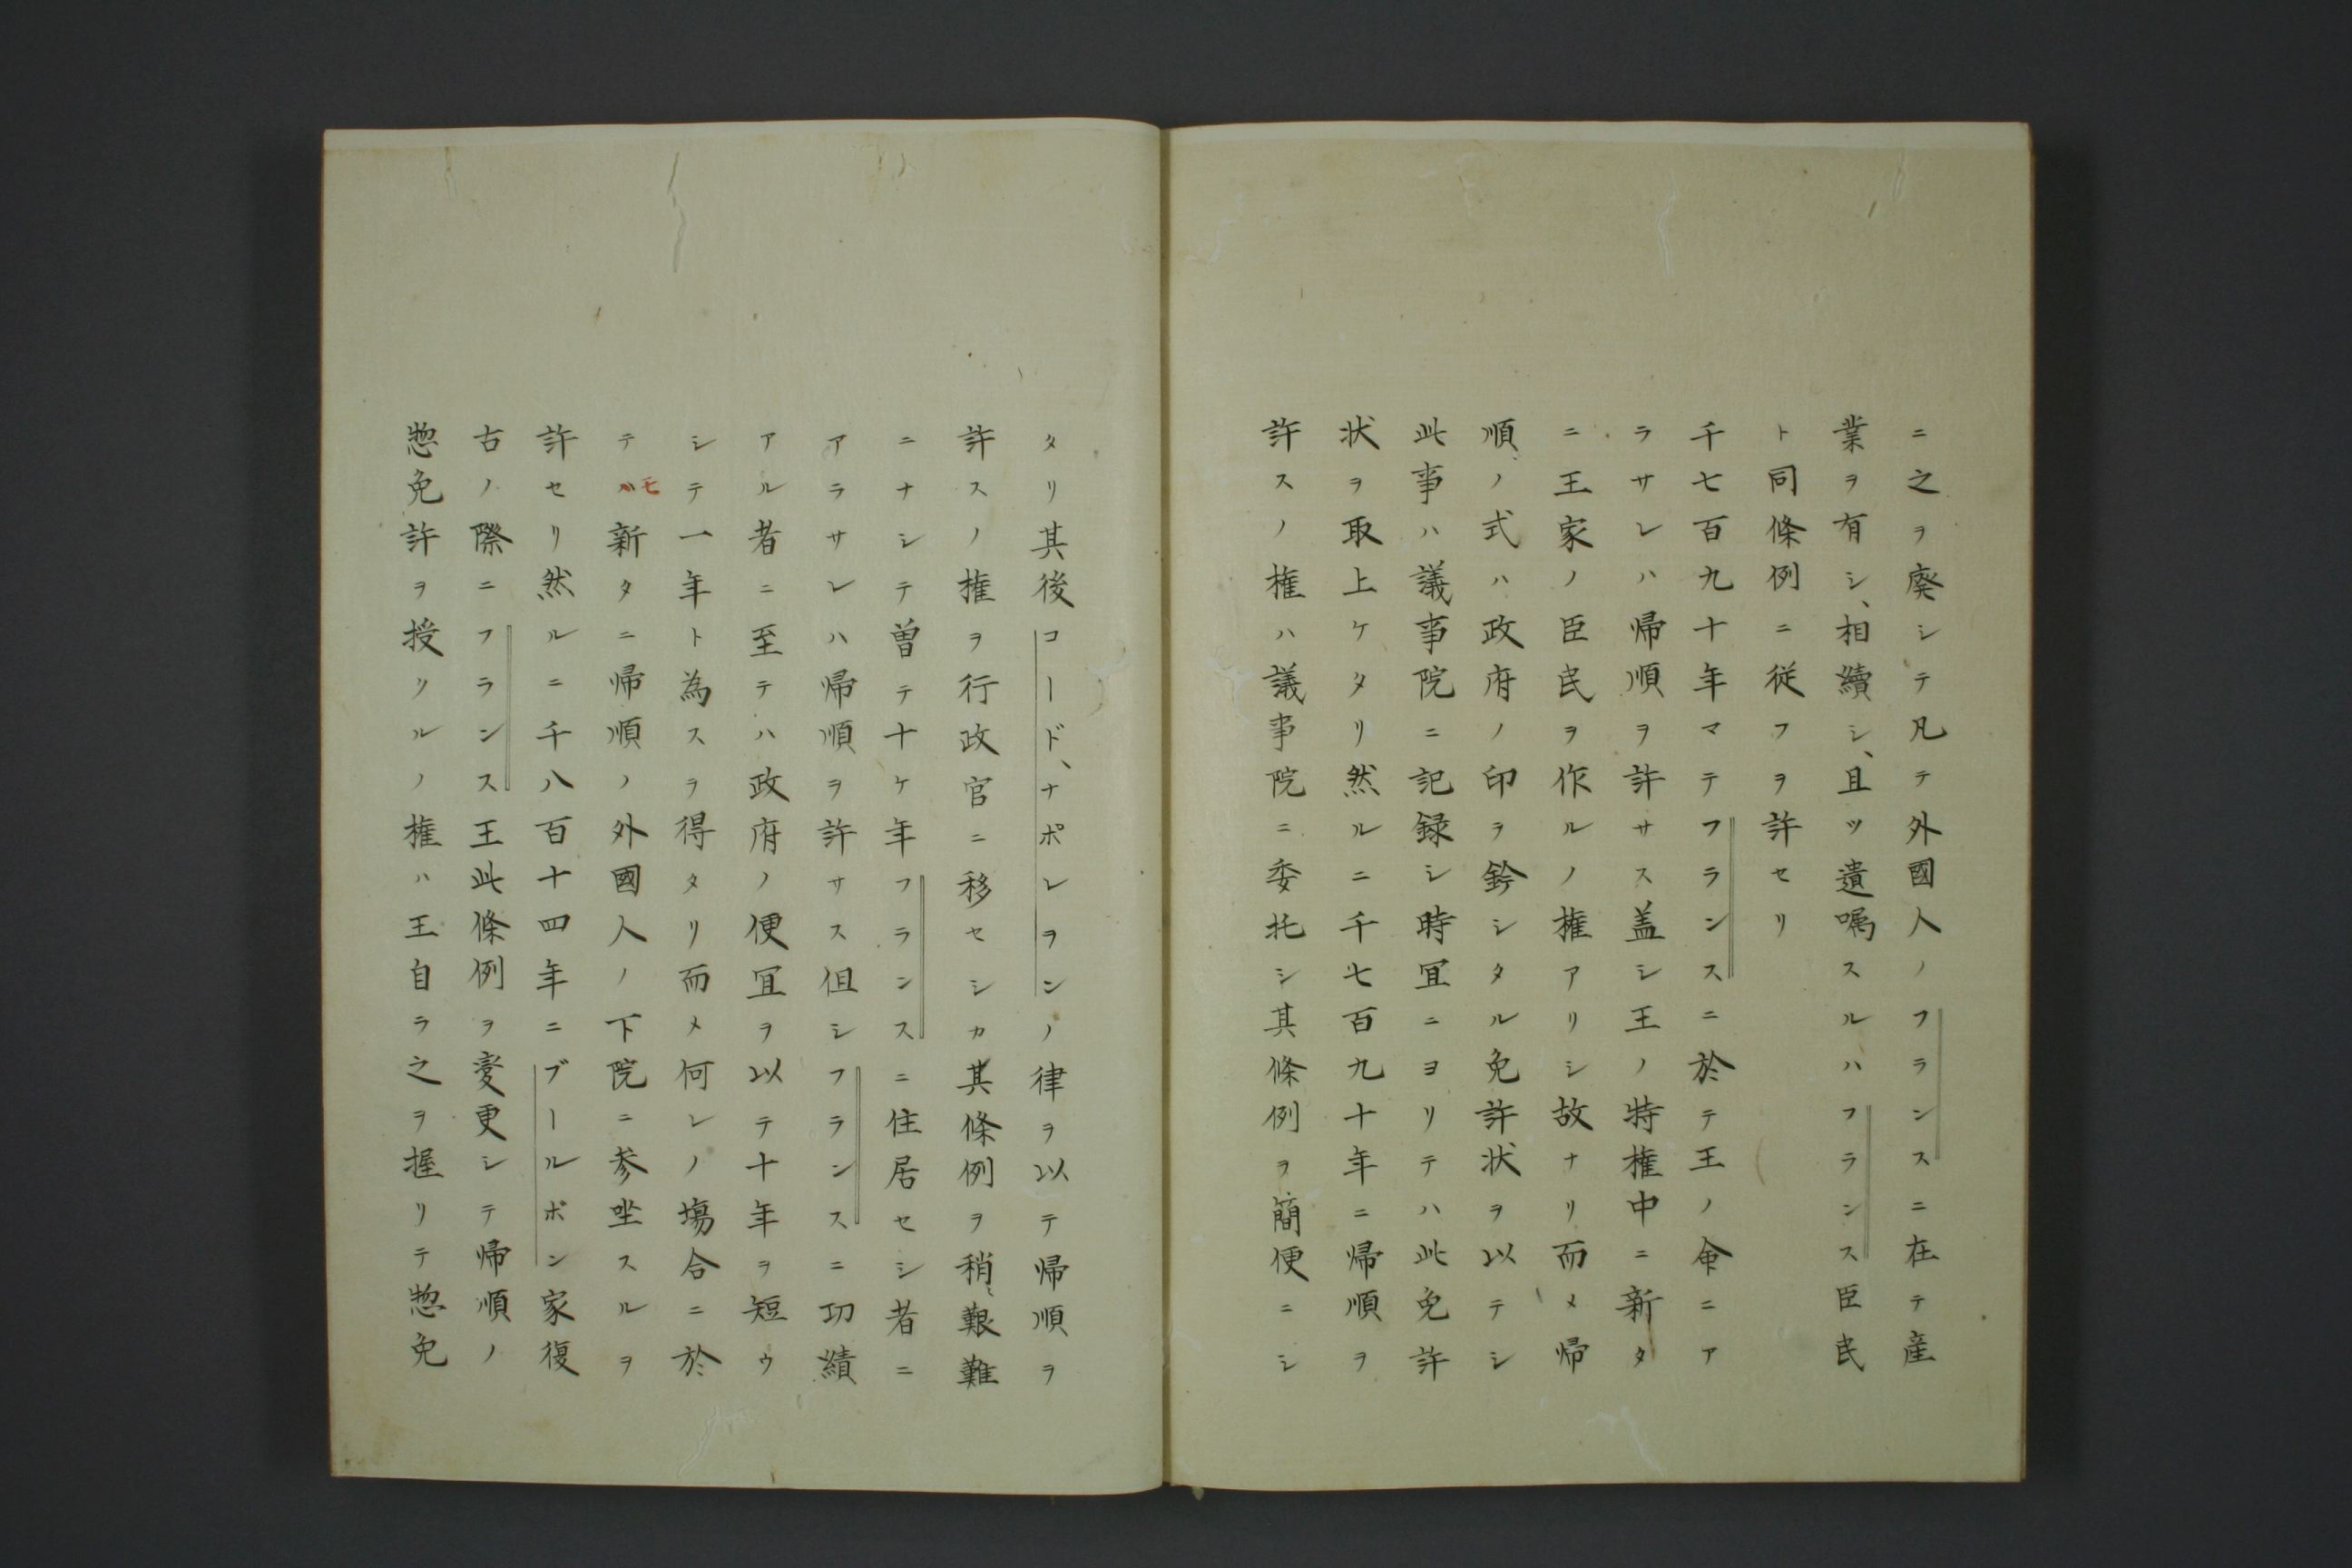 ニ之ヲ廃シテ凡テ外國人ノフランスニ在テ産
業ヲ有シ、相續シ、且ツ遺嘱スルハフランス臣民
ト同條例ニ従フヲ許セリ
千七百九十年マテフランスニ於テ王ノ命ニア
ラサレハ帰順ヲ許サス盖シ王ノ特権中ニ新タ
ニ王家ノ臣民ヲ作ルノ権アリシ故ナリ而メ帰
順ノ式ハ政府ノ印ヲ鈐シタル免許状ヲ以テシ
此事ハ議事院ニ記録シ時冝ニヨリテハ此免許
状ヲ取上ケタリ然ルニ千七百九十年ニ帰順ヲ
許スノ権ハ議事院ニ委托シ其條例ヲ簡便ニシ
タリ其後コード、ナポレヲンノ律ヲ以テ帰順ヲ
許スノ権ヲ行政官ニ移セシカ其條例ヲ稍〻艱難
ニナシテ曽テ十ケ年フランスニ住居セシ者ニ
アラサレハ帰順ヲ許サス但シフランスニ功績
アル者ニ至テハ政府ノ便冝ヲ以テ十年ヲ短ウ
シテ一年ト為スヲ得タリ而メ何レノ塲合ニ於
テハモ新タニ帰順ノ外國人ノ下院ニ参坐スルヲ
許セリ然ルニ千八百十四年ニブールボン家復
古ノ際ニフランス王此條例ヲ変更シテ帰順ノ
惣免許ヲ授クルノ権ハ王自ラ之ヲ握リテ惣免